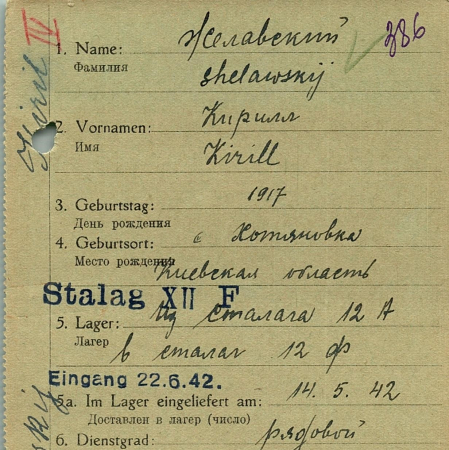 IV
386
Kiril
Желавский
1. Name:
Фамилия
Shelawskij
Кирилл
2. Vornamen:
Имя
Kirill
1917
3. Geburtstag:
День рождения
4. Geburtsort: с Хотяновка
Место рождения Киевская область
Stalag XII F
5. Lager: Из сталага 12 А
Лагер
в сталаг 12 Ф
Eingang 22.6.42.
5a. Im Lager eingeliefert am: 14. 5. 42
Доставлен в лагер (число)
6. Dienstgrad: рядовой